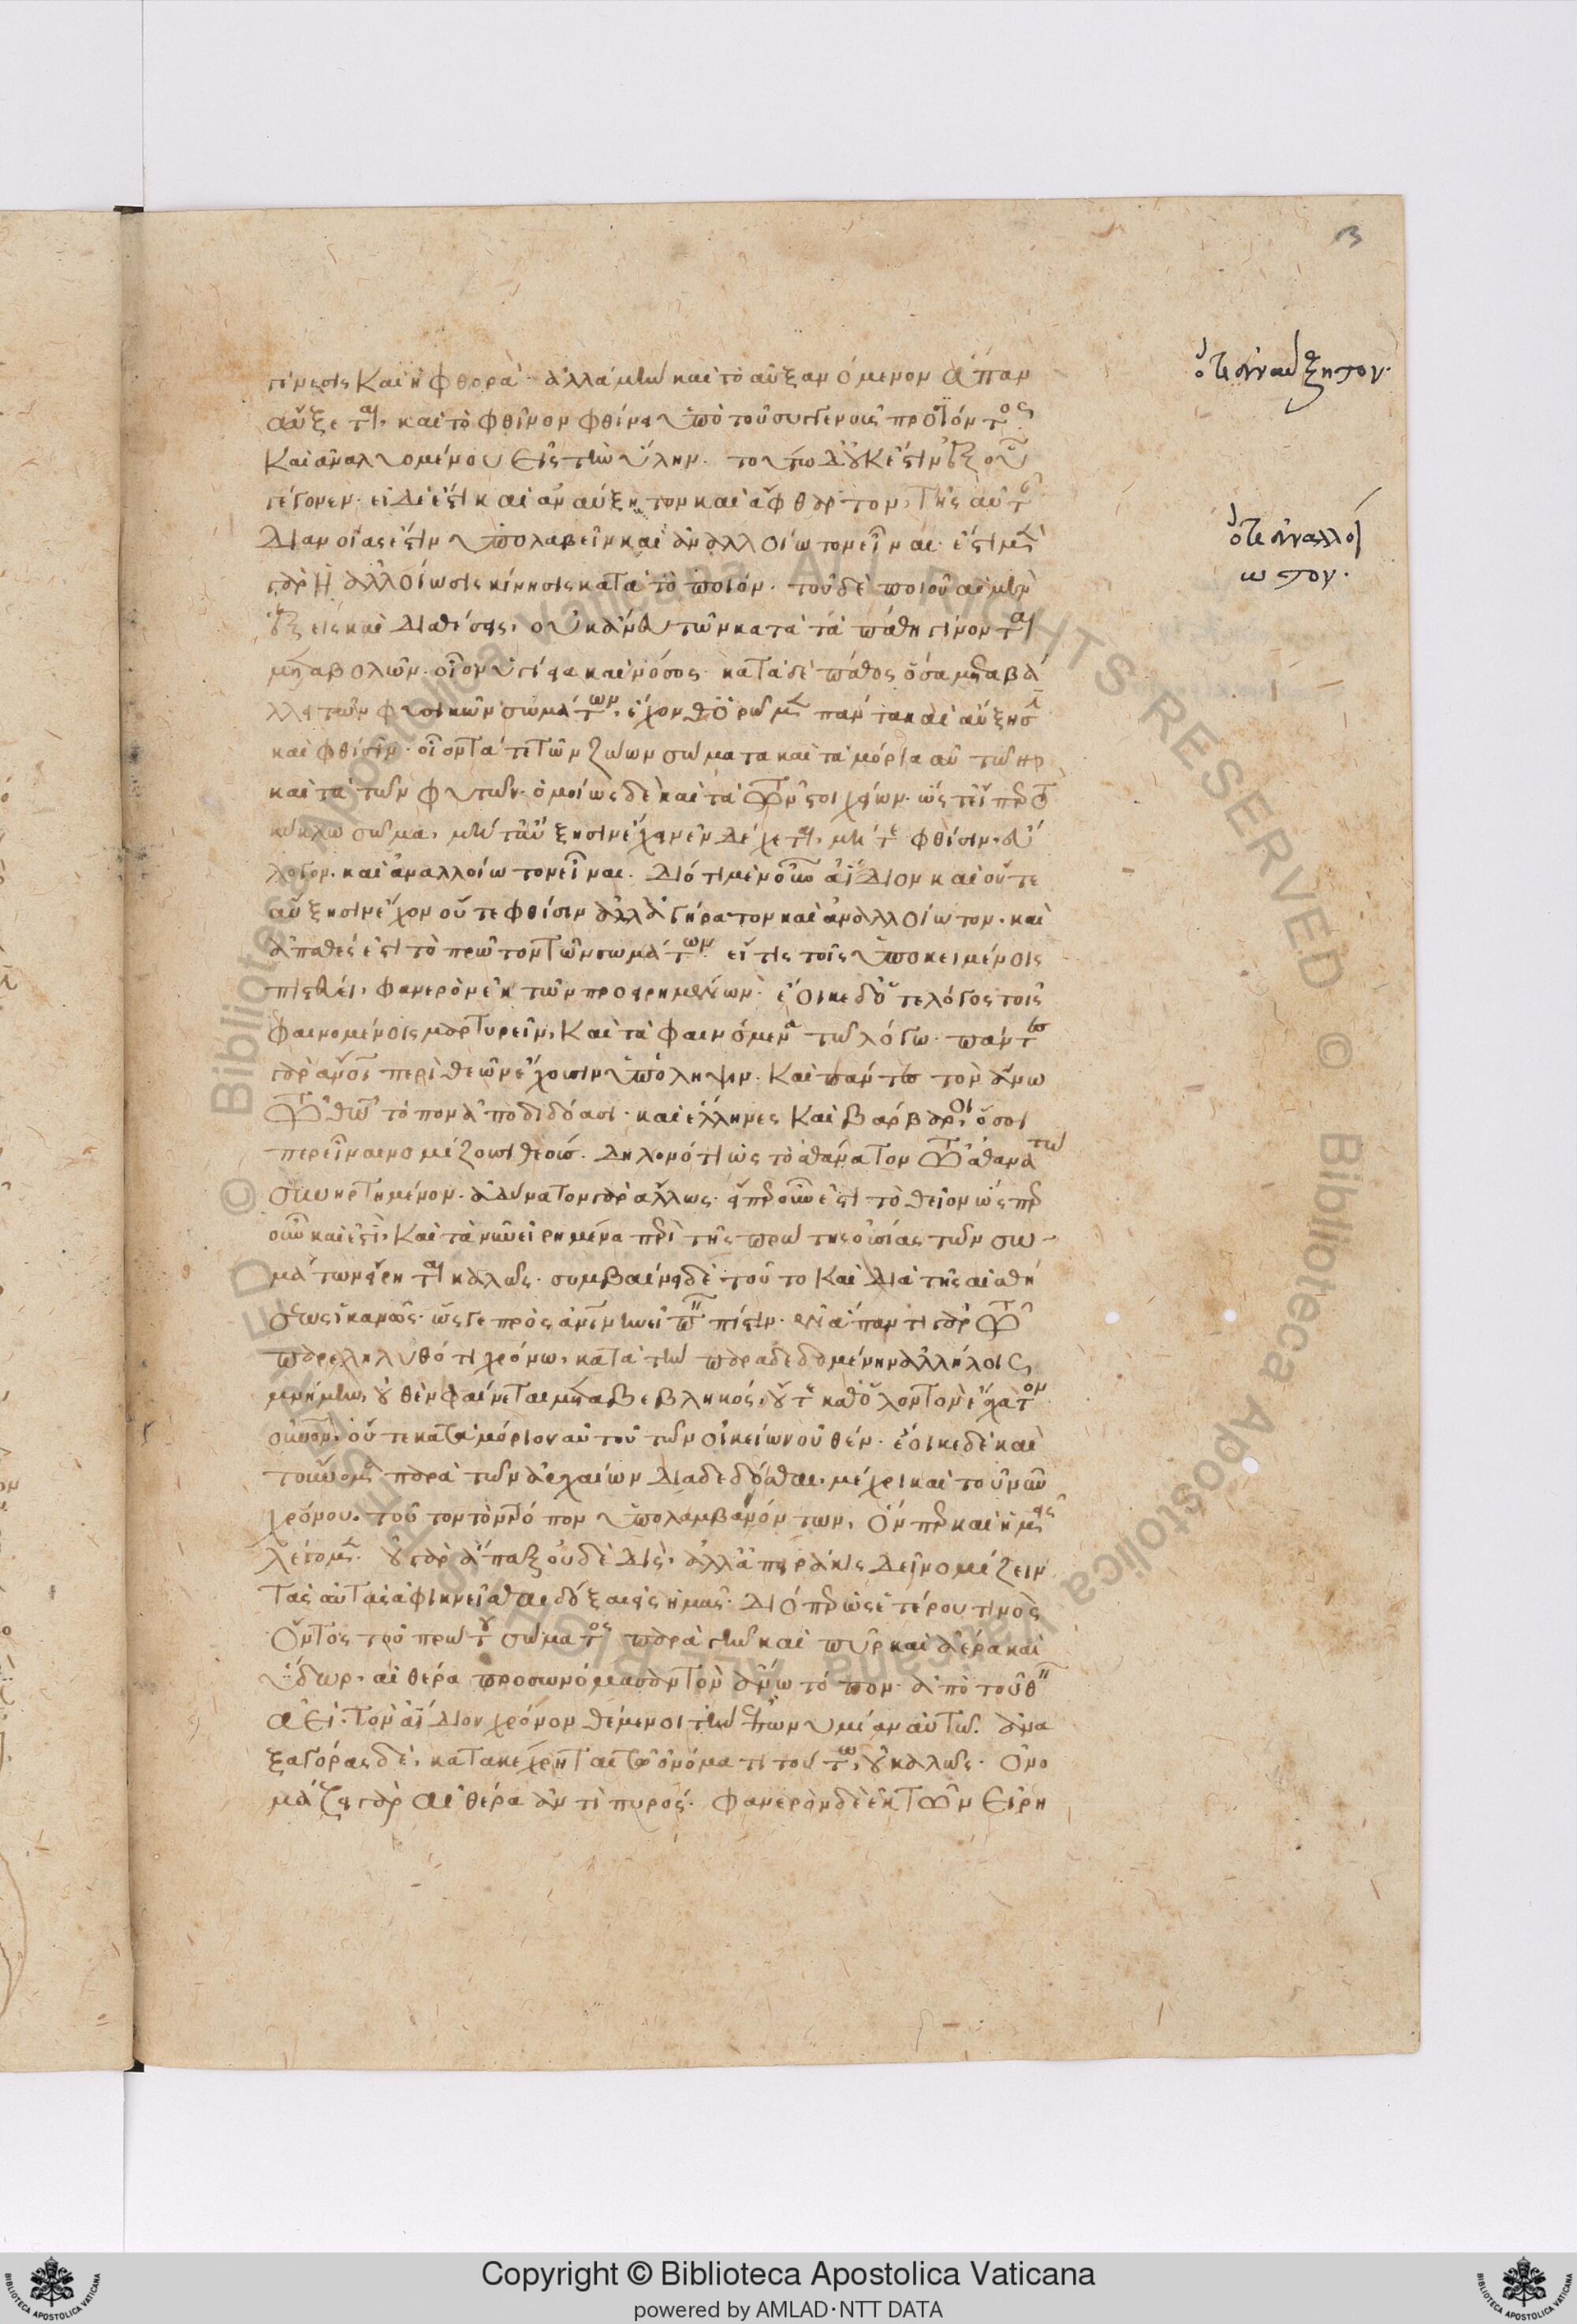 13
γένεσις καὶ ἡ φθορά· ἀλλὰ μὴν καὶ τὸ αὐξανόμενον ἅπαν
αὔξεται, καὶ τὸ φθῖνον φθίνει ὑπὸ τοῦ συγγενοῦς προϊόντος
καὶ ἀναλυομένου εἰς τὴν ὕλην· τούτῳ δ' οὐκ ἔστιν ἐξ οὗ
γέγονεν· εἰ δὲ ἐστὶ καὶ ἀναύξητον καὶ ἄφθαρτον, τῆς αὐτῆς
διανοίας ἐστὶν ὑπολαβεῖν καὶ ἀναλλοίωτον εἶναι· ἔστι μὲν
γὰρ ἡ ἀλλοίωσις κίνησις κατὰ τὸ ποιόν· τοῦ δὲ ποιοῦ αἱ μὲν
ἕξεις καὶ διαθέσεις, οὐκ ἄνευ τῶν κατὰ τὰ πάθη γίνονται
μεταβολῶν· οἷον ὑγίεια καὶ νόσος· κατὰ δὲ πάθος ὅσα μεταβά
λλει τῶν φυσικῶν σωμάτων, ἔχονθ' ὁρῶμεν πάντα καὶ αὔξησιν
καὶ φθίσιν· οἷον τά τε τῶν ζώων σώματα καὶ τὰ μόρια αὐτῶν
καὶ τὰ τῶν φυτῶν· ὁμοίως δὲ καὶ τὰ τῶν στοιχείων· ὥστ' εἴπερ τὸ
κύκλω σῶμα, μήτ' αὔξησιν ἔχειν ἐνδέχεται, μήτε φθίσιν, εὔ
λογον καὶ ἀναλλοίωτον εἶναι. διότι μὲν οὖν ἀΐδιον καὶ οὔτε
αὔξησιν ἔχον οὔτε φθίσιν ἀλλ' ἀγήρατον καὶ ἀναλλοίωτον καὶ
ἀπαθές ἐστι τὸ πρῶτον τῶν σωμάτων, εἴ τις τοῖς ὑποκειμένοις
πιστεύει, φανερὸν ἐκ τῶν προειρημένων· ἔοικε δ' ὅ τε λόγος τοῖς
φαινομένοις μαρτυρεῖν, καὶ τὰ φαινόμενα τῶ λόγω· πάντες
γὰρ ἄνθρωποι περὶ θεῶν ἔχουσιν ὑπόληψιν. καὶ πάντες τὸν ἄνω
τῶ θείῳ τόπον ἀποδιδόασι· καὶ ἕλληνες καὶ βάρβαροι, ὅσοι
περ εἶναι νομίζουσι θεούς. δηλονότι ὡς τὸ ἀθάνατον τῶ ἀθανάτω
συνηρτημένον. ἀδύνατον γὰρ ἄλλως· εἴπερ οὖν ἐστι τὸ θεῖον ὥσπερ
οὖν καὶ ἔστι, καὶ τὰ νῦν εἰρημένα περὶ τῆς πρώτης οὐσίας τῶν σω-
μάτων εἴρηται καλῶς· συμβαίνει δὲ τοῦτο καὶ διὰ τῆς αἰσθή
σεως ἱκανῶς· ὥς γε πρὸς ἀνθρωπίνην εἰπεῖν πίστιν. ἐν ἅπαντι γὰρ τῶ
παρεληλυθότι χρόνω, κατὰ τὴν παραδεδομένην ἀλλήλοις
μνήμην, οὐθὲν φαίνεται μεταβεβληκός, οὔτε καθ' ὅλον τὸν ἔσχατον
οὐρανὸν, οὔτε κατὰ μόριον αὐτοῦ τῶν οἰκείων οὐθέν· ἔοικε δὲ καὶ
τοὔνομα παρὰ τῶν ἀρχαίων διαδεδόσθαι, μέχρι καὶ τοῦ νῦν
χρόνου. τοῦτον τὸν τρόπον ὑπολαμβανόντων, ὅνπερ καὶ ἡμεῖς
λέγομεν. οὐ γὰρ ἅπαξ οὐδὲ δὶς, ἀλλ' ἀπειράκις δεῖ νομίζειν
τὰς αὐτὰς ἀφικνεῖσθαι δόξας εἰς ἡμᾶς. διόπερ ὡς ἑτέρου τινὸς
ὄντος τοῦ πρώτου σώματος παρὰ γῆν καὶ πῦρ καὶ ἀέρα καὶ
ὕδωρ, αἰθέρα προσωνόμασαν τὸν ἄνω τόπον· ἀπὸ τοῦ θεῖν
ἀεὶ. τὸν ἀΐδιον χρόνον θέμενοι τὴν ἐπωνυμίαν αὐτῶ. ἀνα
ξαγόρας δὲ, κατακέχρηται τῶ ὀνόματι τούτω, οὐ καλῶς. ὀνο
μάζει γὰρ αἰθέρα ἀντὶ πυρός. φανερὸν δὲ ἐκ τῶν εἰρη
ὅτι ἀναύξητον.
ὅτι ἀναλλοί
ωτον.
Copyright © Biblioteca Apostolica Vaticana
powered by AMLAD·NTT DATA